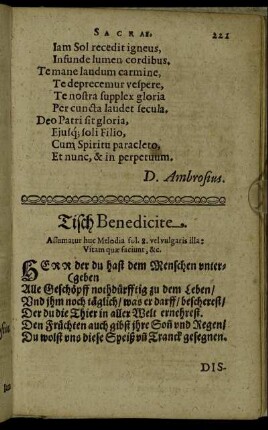 SACRAE. 221
Iam Sol recedit igneus,
Infunde lumen cordibus.
Te mane laudum carmine,
Te deprecemur vespere,
Te nostra supplex gloria
Per cuncta laudet secula.
Deo Patri sit gloria,
Eiusq; soli Filio,
Cum Spiritu paracleto,
Et nunc, & in perpetuum.
D. Ambrosius.
Tisch Benedicite.
Assumatur huc Melodia fol. 8. vel vulgaris illa:
Vitam quæ faciunt, &c.
HERR der du hast dem Menschen unter-
Cgeben
Alle Geschöpff nochdürfftig zu dem Leben/
Vnd ihm noch täglich/ was er darff/ bescherest/
Der du die Thier in aller Welt ernehrest.
Den Früchten auch gibst ihre Soñ vnd Regen/
Du wolst vns diese Speiß vñ Tranck gesegnen.
DIS-